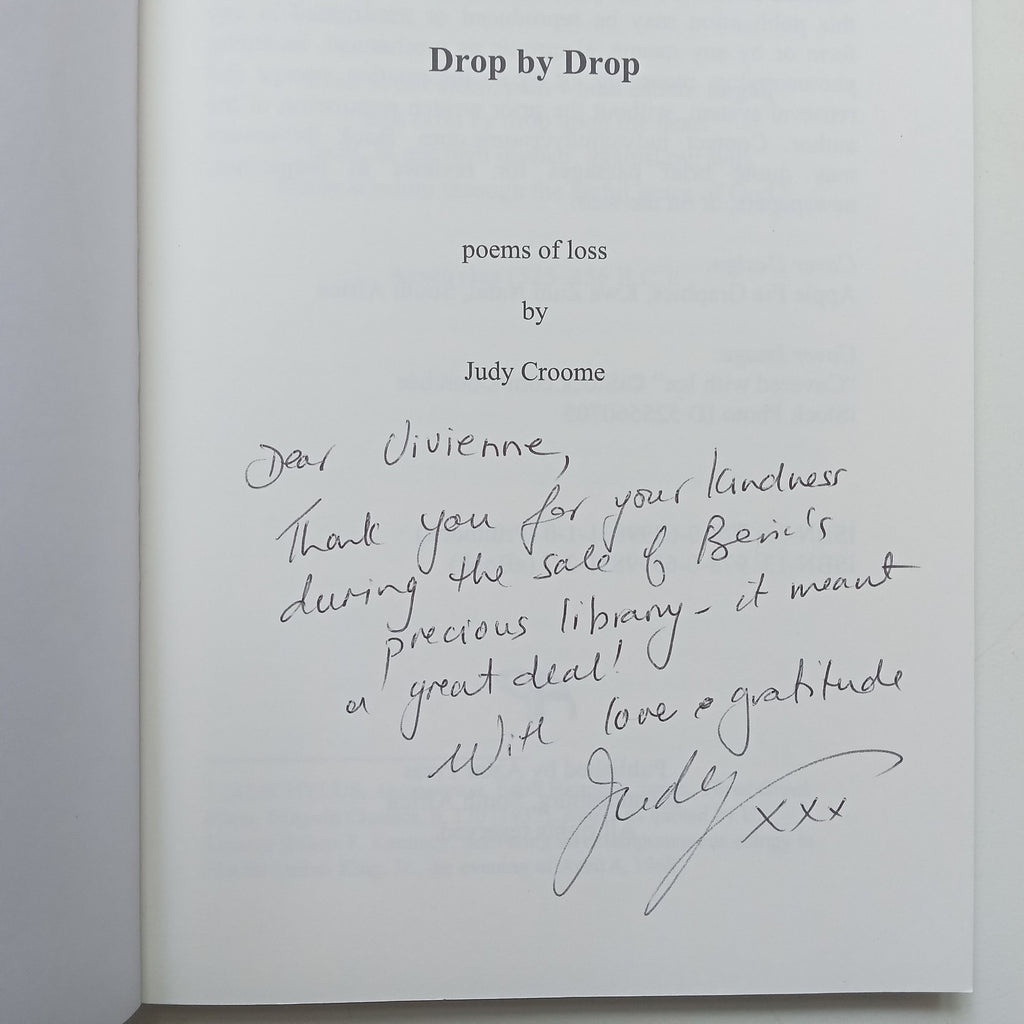 Drop by Drop
poems of loss
by
Judy Croome
Dear Vivienne,
Thank you for your kindness
during the sale of Beric's
precious library – it meant
a great deal!
With love & gratitude
Judy
xxx